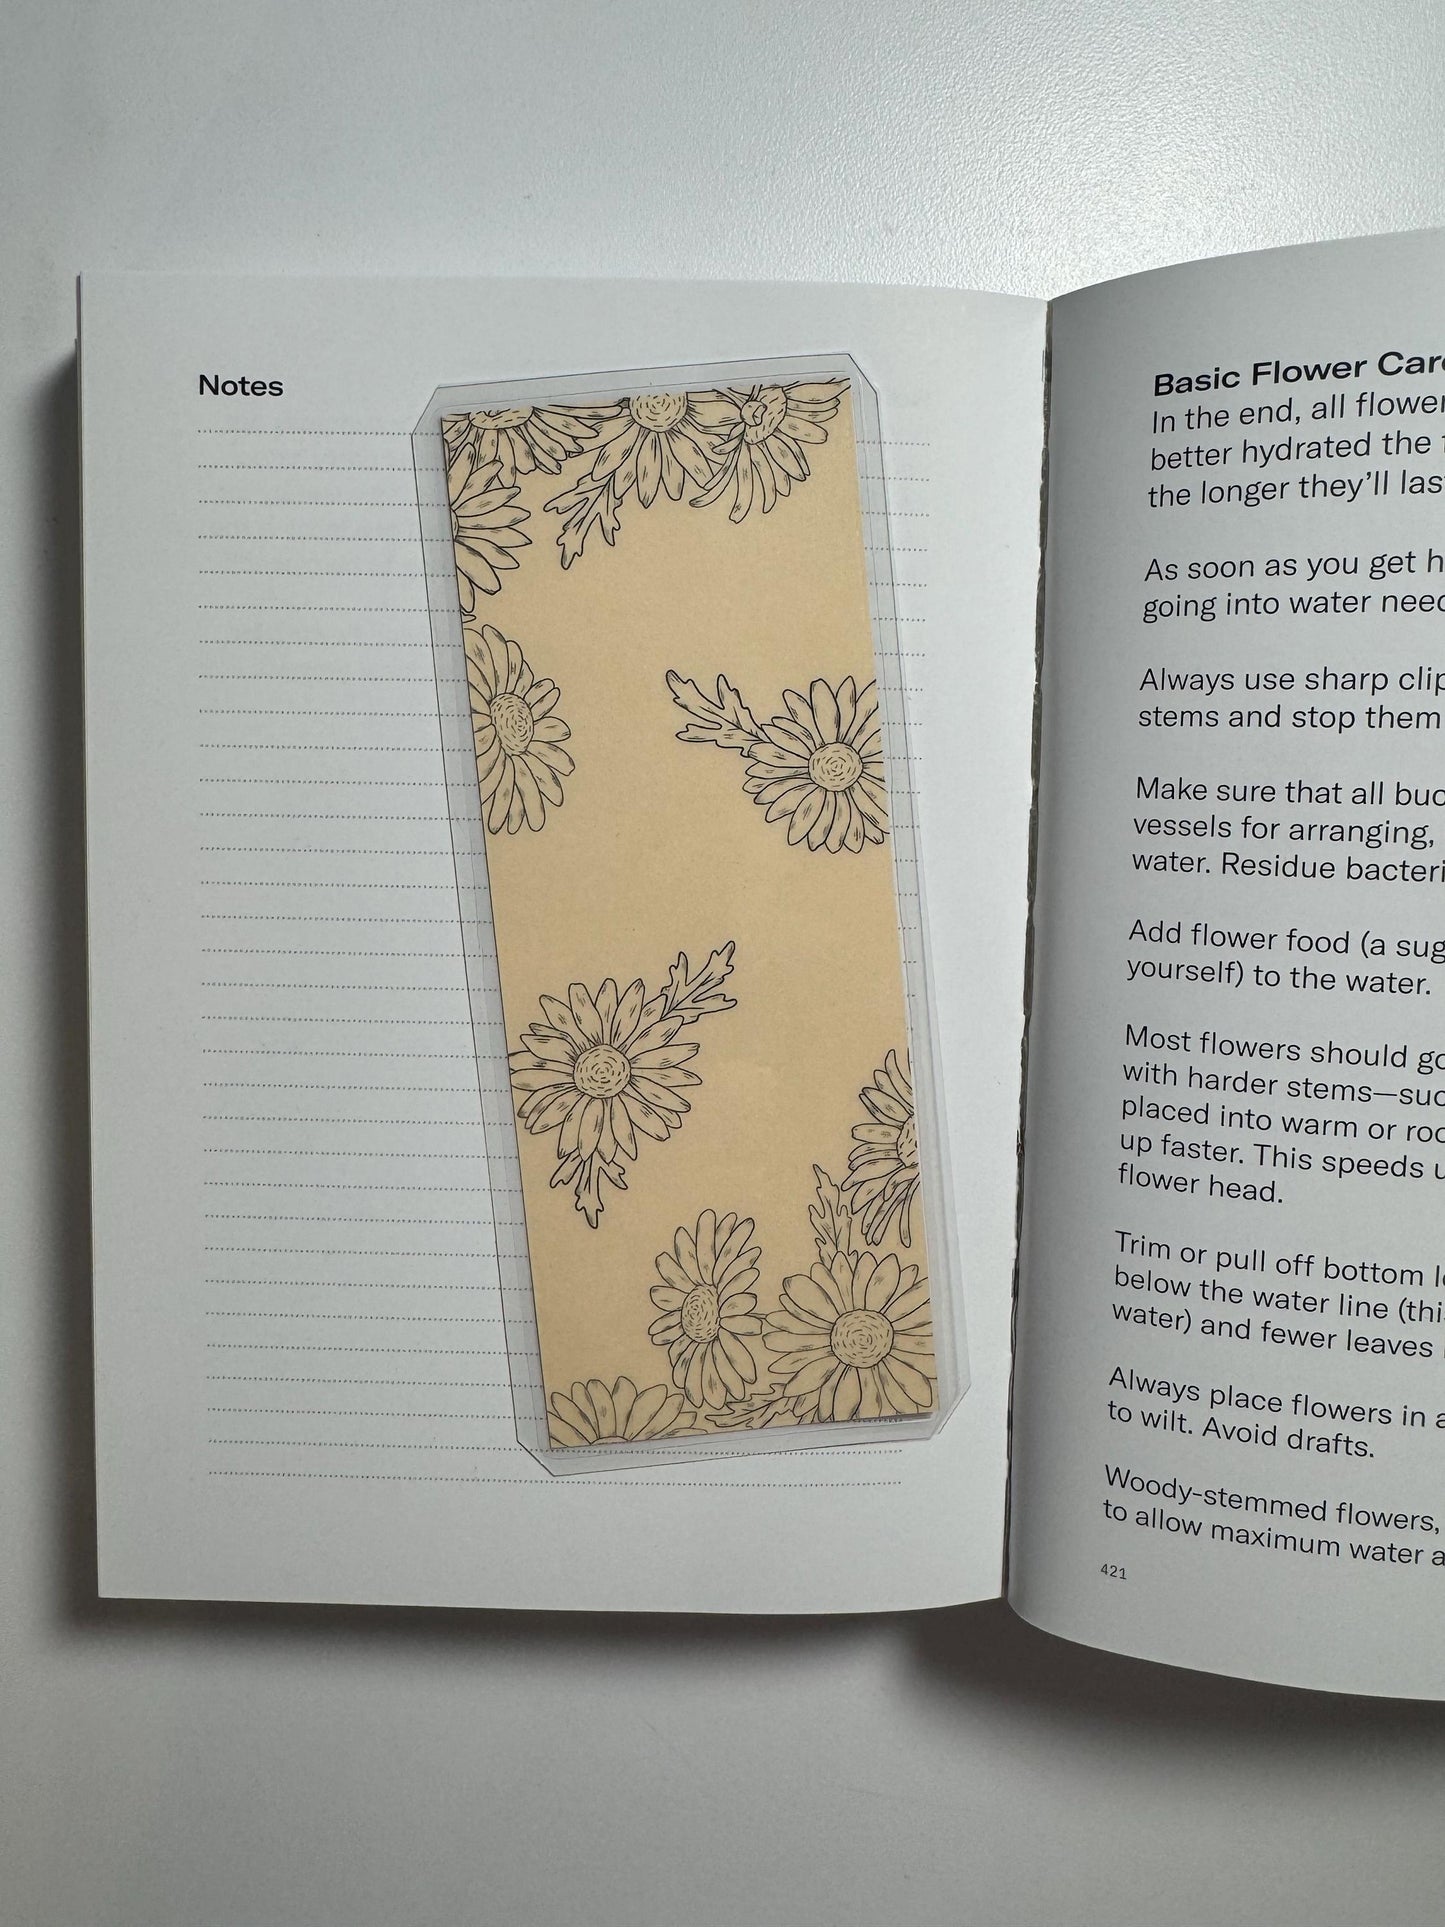 Notes
Basic Flower
In the end, all
better hydrated the
the longer they'll
As soon as you get
going into water
Always use sharp
stems and stop them
Make sure that all
vessels for arranging,
water. Residue
Add flower food (a
yourself) to the water.
Most flowers should
with harder stems—
placed into warm or
up faster. This speeds
flower head.
Trim or pull off bottom
below the water line
water) and fewer leaves
Always place flowers in
to wilt. Avoid drafts.
Woody-stemmed flowers,
to allow maximum water
421